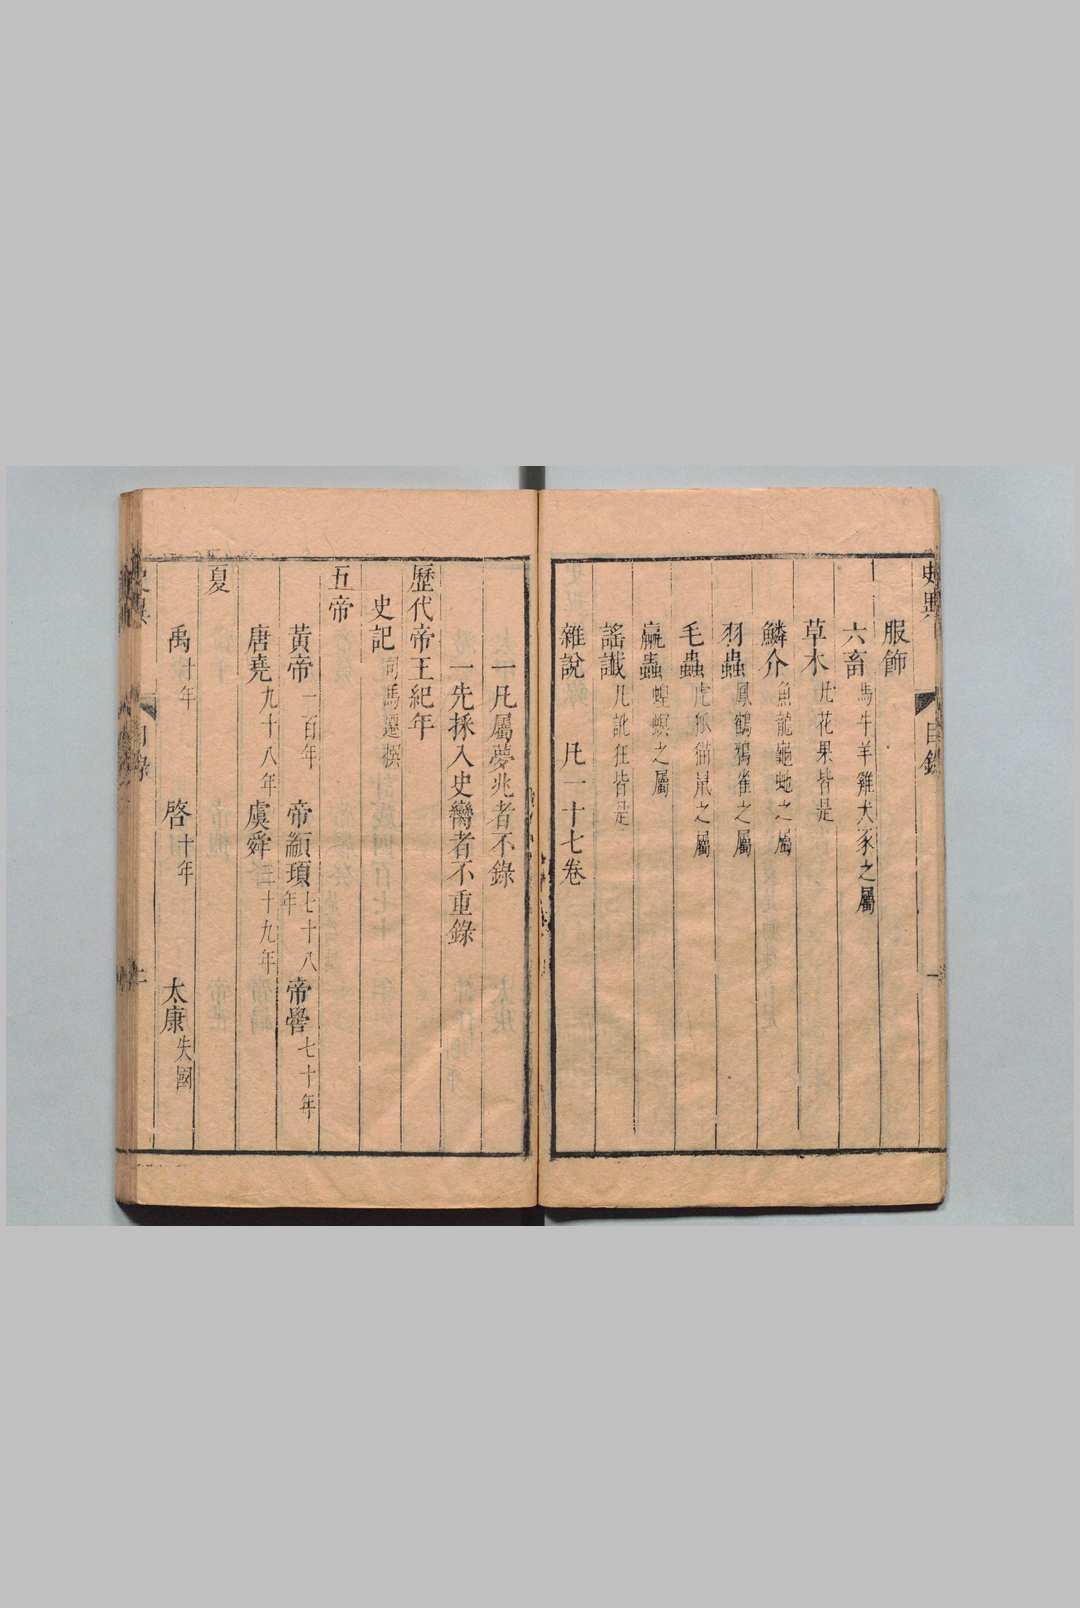 服飾
六畜 馬牛羊雞犬豕之屬
草木 凡花果皆是
鱗介 魚龍龜虵之屬
羽蟲 鳳鶴鴉雀之屬
毛蟲 虎狐猫鼠之屬
臝蟲 蝗螟之屬
謠讖 凡訛狂皆是
雜說 凡一十七卷
一凡屬夢兆者不錄
一先採入史臠者不重錄
歷代帝王紀年
史記 司馬遷撰
五帝
黃帝 一百年 帝顓頊 七十八年 帝嚳 七十年
唐堯 九十八年 虞舜 三十九年
夏
禹 十年 啓 十年 太康 失國
目錄